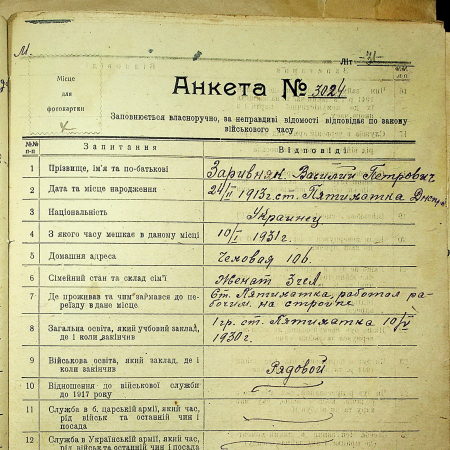 М.
Літ. "Л"
Місце
для
фотокартки
Анкета № 3024
Заповнюється власноручно, за неправдиві відомості відповідає по закону
військового часу
№№ п-п Запитання Відповіді
1 Прізвище, ім'я та по-батькові Заривняк Василий Петрович
2 Дата та місце народження 24/II 1913 г. ст. Пятихатка
3 Національність Украинец
4 З якого часу мешкає в даному місці 10/I 1931 г.
5 Домашня адреса Чеховая 106.
6 Сімейний стан та склад сім'ї Женат 3 чел.
7 Де проживав та чим займався до пе-
реїзду в дане місце Ст. Пятихатка, работал ра-
бочим на стройке
8 Загальна освіта, який учбовий заклад,
де і коли закінчив 1 гр. ст. Пятихатка 10/V
1930 г.
9 Військова освіта, який заклад, де і
коли закінчив Рядовой
10 Відношення до військової служби
до 1917 року
11 Служба в б. царській армії, який час,
рід військ та останній чин і
посада
12 Служба в Українській армії, який час,
рід військ та останній чин і посада